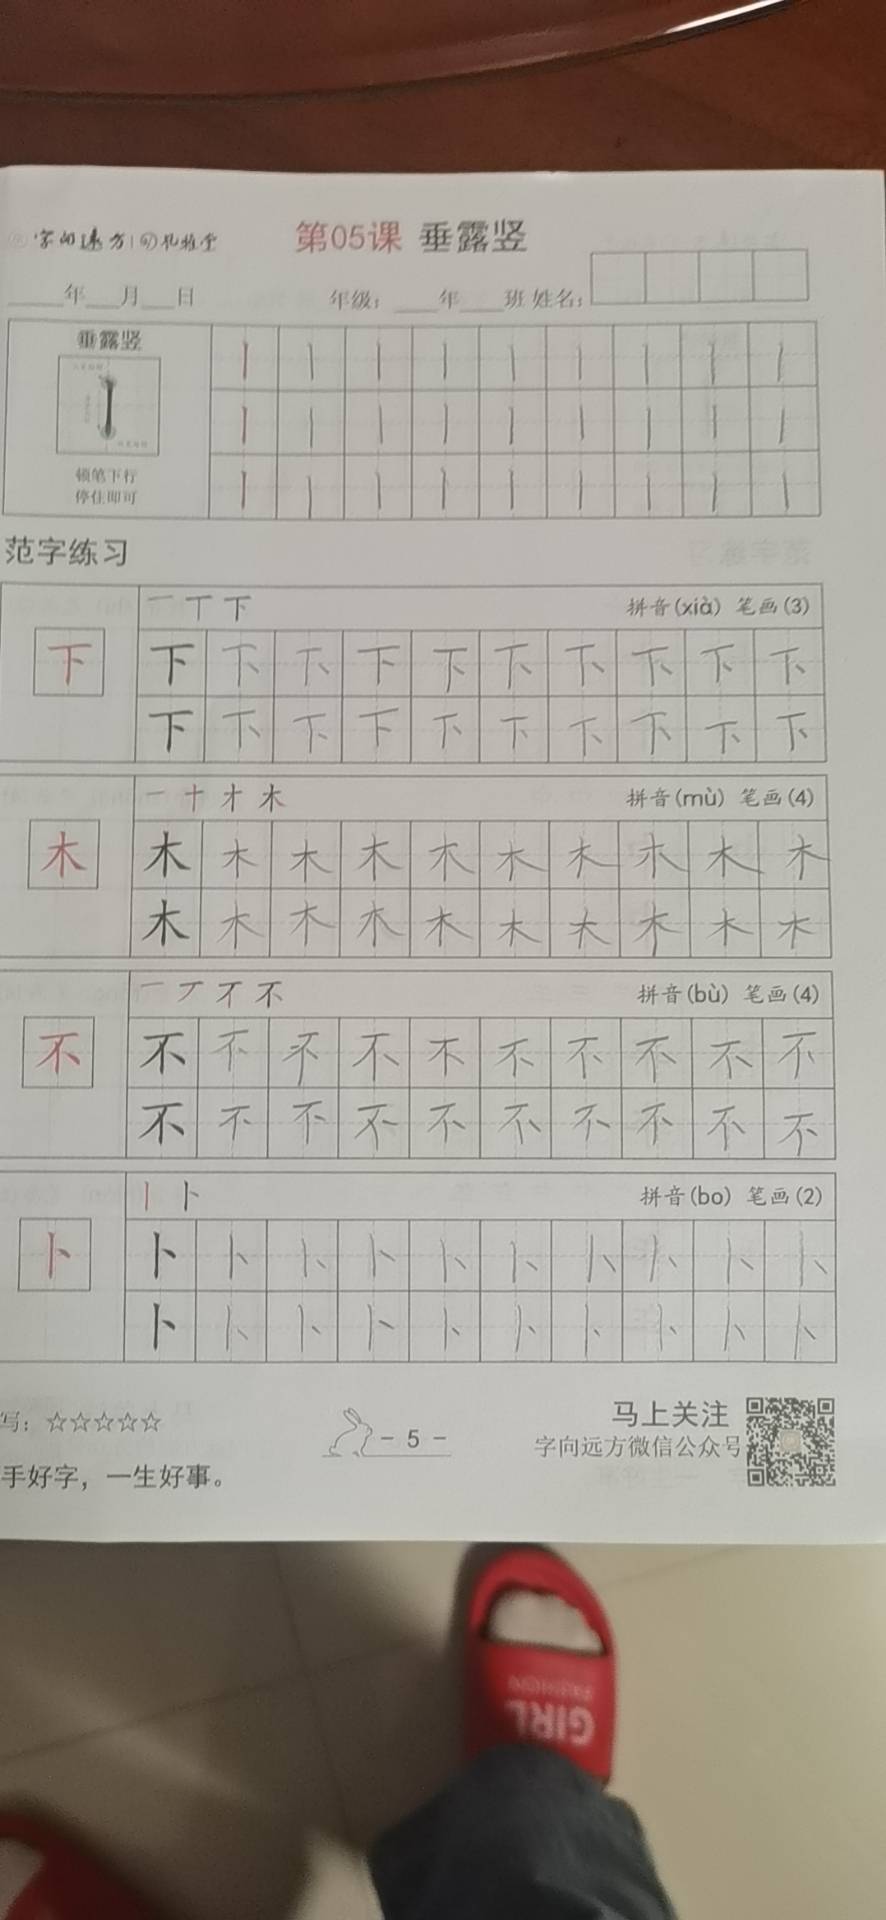 字向远方 习礼雅堂
第05课 垂露竖
____年___月___日 年级：____年____班 姓名：
垂露竖
顿笔下行
停住即可
范字练习
一 丅 下 拼音(xià) 笔画(3)
下 下 下 下 下 下 下 下 下 下 下
下 下 下 下 下 下 下 下 下 下
一 十 才 木 拼音(mù) 笔画(4)
木 木 木 木 木 木 木 木 木 木 木
木 木 木 木 木 木 木 木 木 木
一 丆 才 不 拼音(bù) 笔画(4)
不 不 不 不 不 不 不 不 不 不 不
不 不 不 不 不 不 不 不 不 不
丨 卜 拼音(bo) 笔画(2)
卜 卜 卜 卜 卜 卜 卜 卜 卜 卜 卜
卜 卜 卜 卜 卜 卜 卜 卜 卜 卜
写：☆☆☆☆☆
手好字，一生好事。
- 5 -
马上关注
字向远方微信公众号
GIRL
FASHION